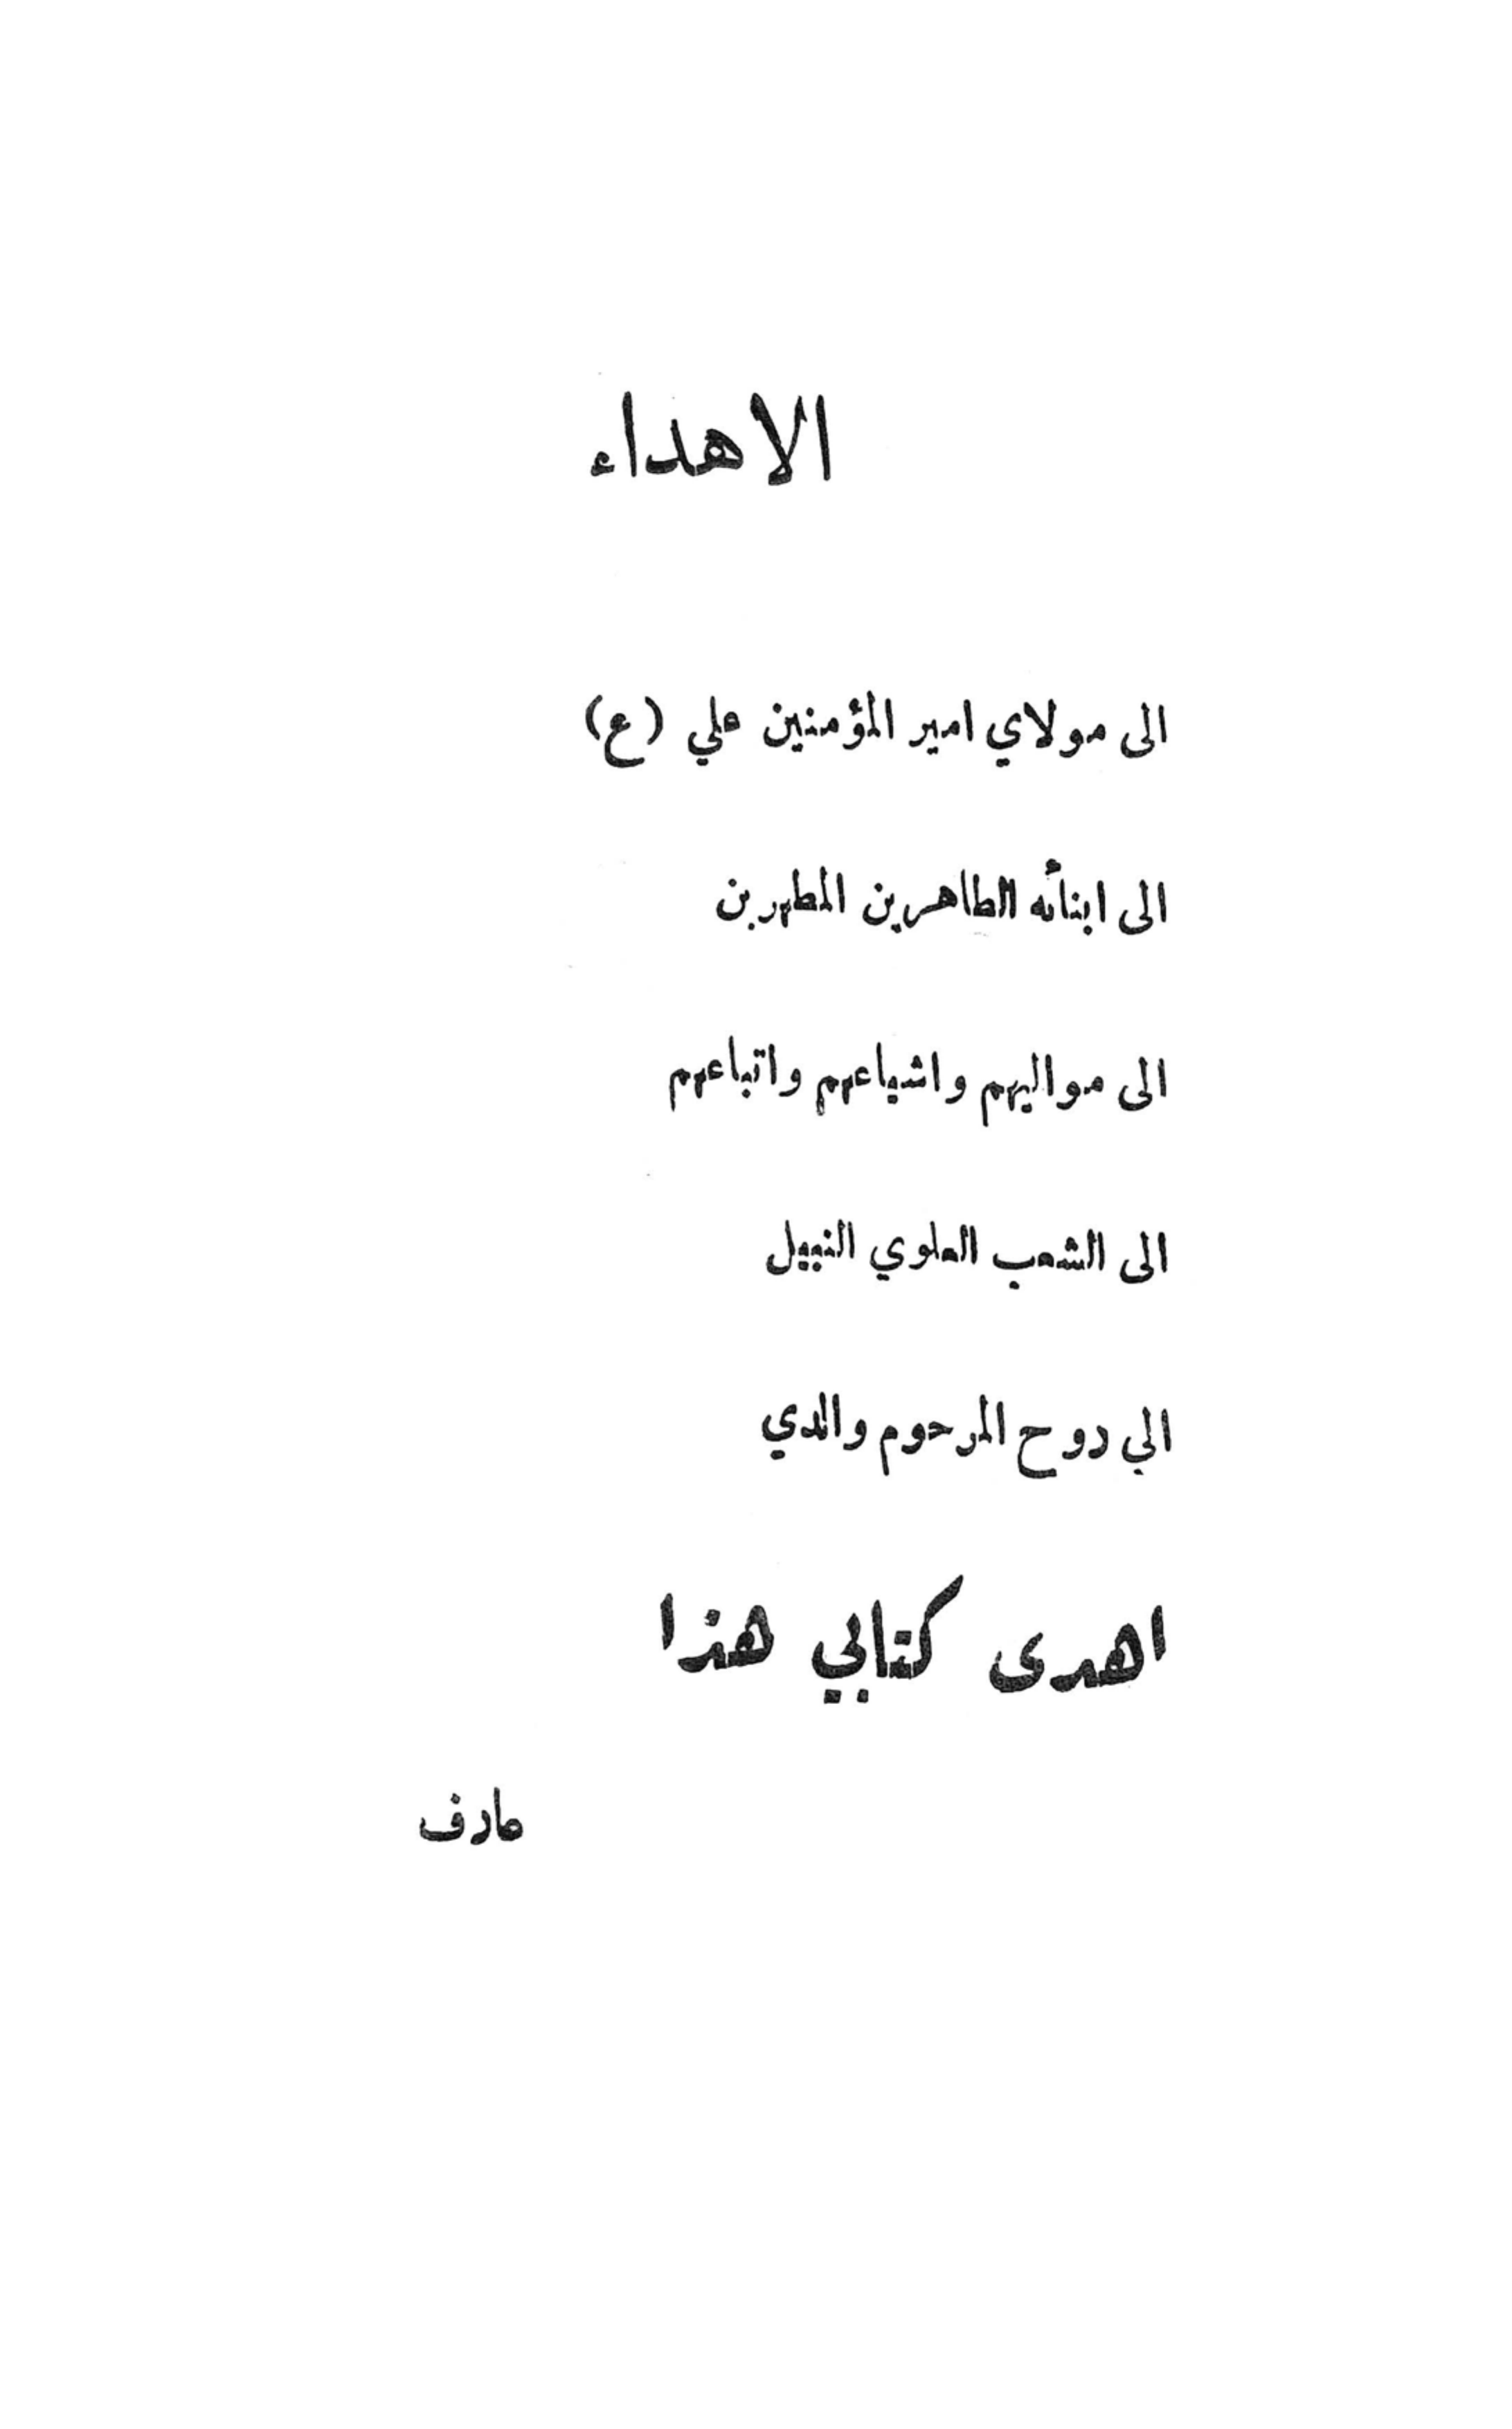 الاهداء
الى مولاي امير المؤمنين علي (ع)
الى ابنأه الطاهرين المطهرين
الى مواليهم واشياعهم واتباعهم
الى الشعب العلوي النبيل
الي روح المرحوم والدي
اهدى كتابي هذا
عارف